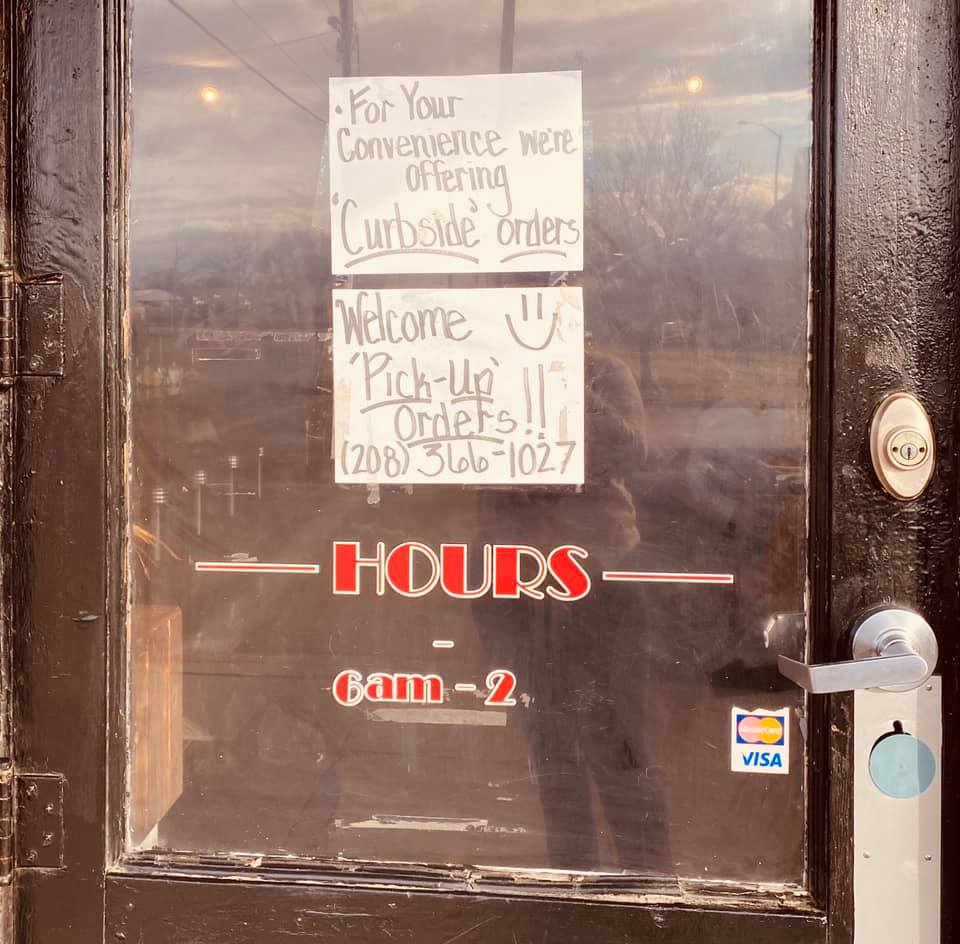 • For Your
Convenience we're
offering
'Curbside' orders
Welcome
'Pick-Up'
Orders!!
(208) 366-1027
HOURS
-
6am - 2
MasterCard
VISA